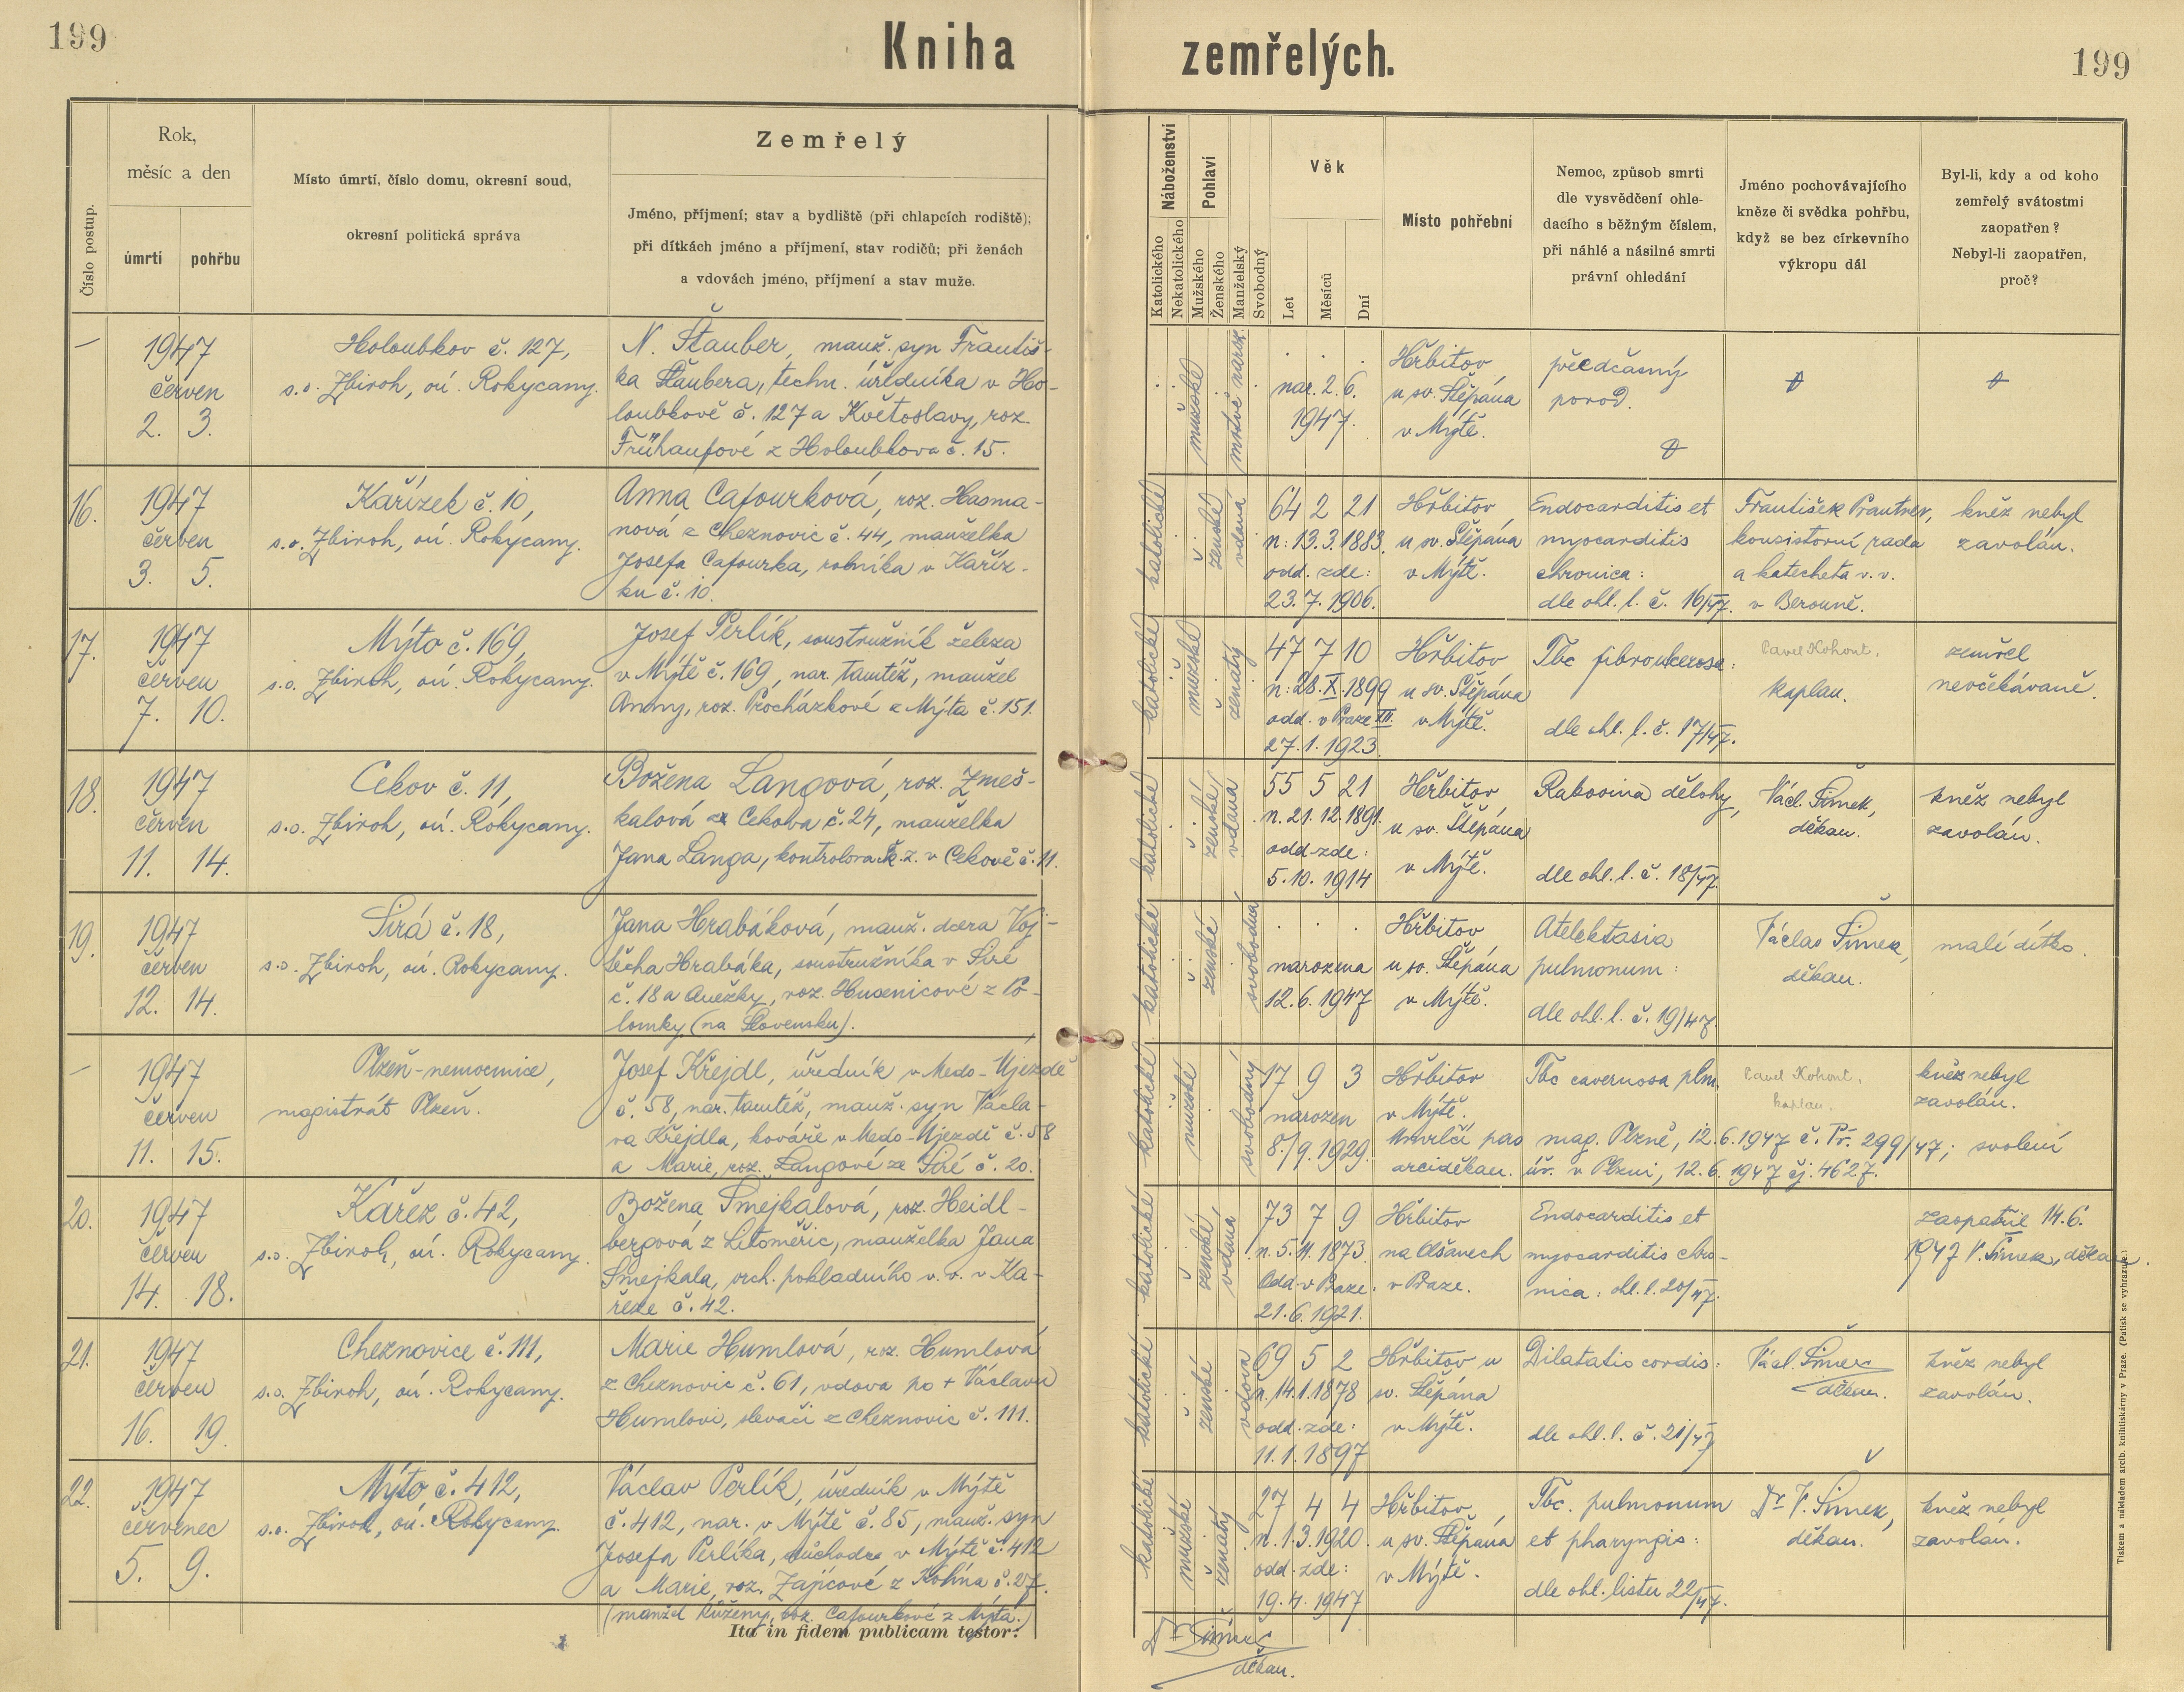 199
Kniha zemřelých.
199
Číslo postup.
Rok,
měsíc a den
úmrtí
pohřbu
Místo úmrtí, číslo domu, okresní soud,
okresní politická správa
Zemřelý
Jméno, příjmení; stav a bydliště (při chlapcích rodiště);
při dítkách jméno a příjmení, stav rodičů; při ženách
a vdovách jméno, příjmení a stav muže.
Náboženství
Katolického
Nekatolického
Pohlaví
Mužského
Ženského
Manželský
Svobodný
Věk
Let
Měsíců
Dní
Místo pohřební
Nemoc, způsob smrti
dle vysvědčení ohle-
dacího s běžným číslem,
při náhlé a násilné smrti
právní ohledání
Jméno pochovávajícího
kněze či svědka pohřbu,
když se bez církevního
výkropu dál
Byl-li, kdy a od koho
zemřelý svátostmi
zaopatřen?
Nebyl-li zaopatřen,
proč?
—
1947
červen
2. 3.
Holoubkov č. 127,
s.o. Zbiroh, oú. Rokycany.
N. Štauber, manž. syn Františ-
ka Štaubera, techn. úředníka v Ho-
loubkově č. 127 a Květoslavy, roz.
Frühaufové z Holoubkova č. 15.
mužské
mrtvě naroz.
nar. 2. 6.
1947.
Hřbitov
u sv. Štěpána
v Mýtě.
předčasný
porod.
16.
1947
červen
3. 5.
Kařízek č. 10,
s.o. Zbiroh, oú. Rokycany.
Anna Cafourková, roz. Hasma-
nová z Cheznovic č. 44, manželka
Josefa Cafourka, rolníka v Kaříz-
ku č. 10.
katolické
ženské
vdaná
64 2 21
n: 13.3.1883.
odd. zde:
23.7.1906.
Hřbitov
u sv. Štěpána
v Mýtě.
Endocarditis et
myocarditis
chronica:
dle ohl. l. č. 16/47.
František Prautner,
konsistorní rada
a katecheta v. v.
v Berouně.
kněz nebyl
zavolán.
17.
1947
červen
7. 10.
Mýto č. 169,
s.o. Zbiroh, oú. Rokycany.
Josef Perlík, soustružník železa
v Mýtě č. 169, nar. tamtéž, manžel
Anny, roz. Procházkové z Mýta č. 151.
katolické
mužské
ženatý
47 7 10
n. 28. X. 1899
odd. v Praze XII.
27.1.1923.
Hřbitov
u sv. Štěpána
v Mýtě.
Tbc fibroulcerosa:
dle ohl. l. č. 17/47.
Pavel Kohout,
kaplan.
zemřel
neočekávaně.
18.
1947
červen
11. 14.
Cekov č. 11,
s.o. Zbiroh, oú. Rokycany.
Božena Langová, roz. Zmeš-
kalová z Cekova č. 24, manželka
Jana Langa, kontrolora v Cekově č. 11.
katolické
ženské
vdaná
55 5 21
n. 21.12.1891.
odd. zde:
5.10.1914
Hřbitov
u sv. Štěpána
v Mýtě.
Rakovina dělohy,
dle ohl. l. č. 18/47.
Václ. Šimek,
děkan.
kněz nebyl
zavolán.
19.
1947
červen
12. 14.
Sirá č. 18,
s.o. Zbiroh, oú. Rokycany.
Jana Hrabáková, manž. dcera Voj-
těcha Hrabáka, soustružníka v Siré
č. 18 a Anežky, roz. z Po-
lomky (na Slovensku).
katolické
ženské
svobodná
narozena
12.6.1947
Hřbitov
u sv. Štěpána
v Mýtě.
Atelektasia
pulmonum:
dle ohl. l. č. 19/47.
Václav Šimek,
děkan.
malé dítko.
—
1947
červen
11. 15.
Plzeň-nemocnice,
magistrát Plzeň.
Josef Křejdl, úředník v Medo-Újezdě
č. 58, nar. tamtéž, manž. syn Václa-
va Křejdla, kováře v Medo-Újezdě č. 58
a Marie, roz. Langové ze Siré č. 20.
katolické
mužské
svobodný
17 9 3
narozen
8./9.1929.
Hřbitov
v Mýtě.
Tbc cavernosa plm.
Pavel Kohout,
kaplan.
kněz nebyl
zavolán.
Umrlčí pas mag. Plzně, 12.6.1947 č. Př. 299/47; svolení
arciděkan. úř. v Plzni, 12.6.1947 čj. 4627.
20.
1947
červen
14. 18.
Kařez č. 42,
s.o. Zbiroh, oú. Rokycany
Božena Šmejkalová, roz. Heidl-
bergová z Litoměřic, manželka Jana
Šmejkala, vrch. pokladního v. v. v Ka-
řeze č. 42.
katolické
ženské
vdaná
73 7 9
n. 5.11.1873.
Odd. v Praze:
21.6.1921.
Hřbitov
na Olšanech
v Praze.
Endocarditis et
myocarditis chro-
nica: ohl. l. 20/47.
zaopatřil 14.6.
1947 V. Šimek, děkan.
21.
1947
červen
16. 19.
Cheznovice č. 111,
s.o. Zbiroh, oú. Rokycany.
Marie Humlová, roz. Humlová
z Cheznovic č. 61, vdova po + Václavu
Humlovi, slevači z Cheznovic č. 111.
katolické
ženské
vdova
69 5 2
n. 14.1.1878
odd. zde:
11.1.1897
Hřbitov u
sv. Štěpána
v Mýtě.
Dilatatio cordis:
dle ohl. l. č. 21/47
Václ. Šimek
děkan.
kněz nebyl
zavolán.
22.
1947
červenec
5. 9.
Mýto č. 412,
s.o. Zbiroh, oú. Rokycany.
Václav Perlík, úředník v Mýtě
č. 412, nar. v Mýtě č. 85, manž. syn
Josefa Perlíka, důchodce v Mýtě č. 412
a Marie, roz. Zajícové z Kolína č. 27.
(manžel Růženy, roz. Cafourkové z Mýta.)
katolické
mužské
ženatý
27 4 4
n. 1.3.1920.
odd. zde:
19.4.1947
Hřbitov
u sv. Štěpána
v Mýtě.
Tbc. pulmonum
et pharyngis:
dle ohl. listu 22/47.
Dr. V. Šimek,
děkan.
kněz nebyl
zavolán.
Ita in fidem publicam testor:
Dr. Šimek
děkan.
Tiskem a nákladem arcib. knihtiskárny v Praze. (Patisk se vyhrazuje.)